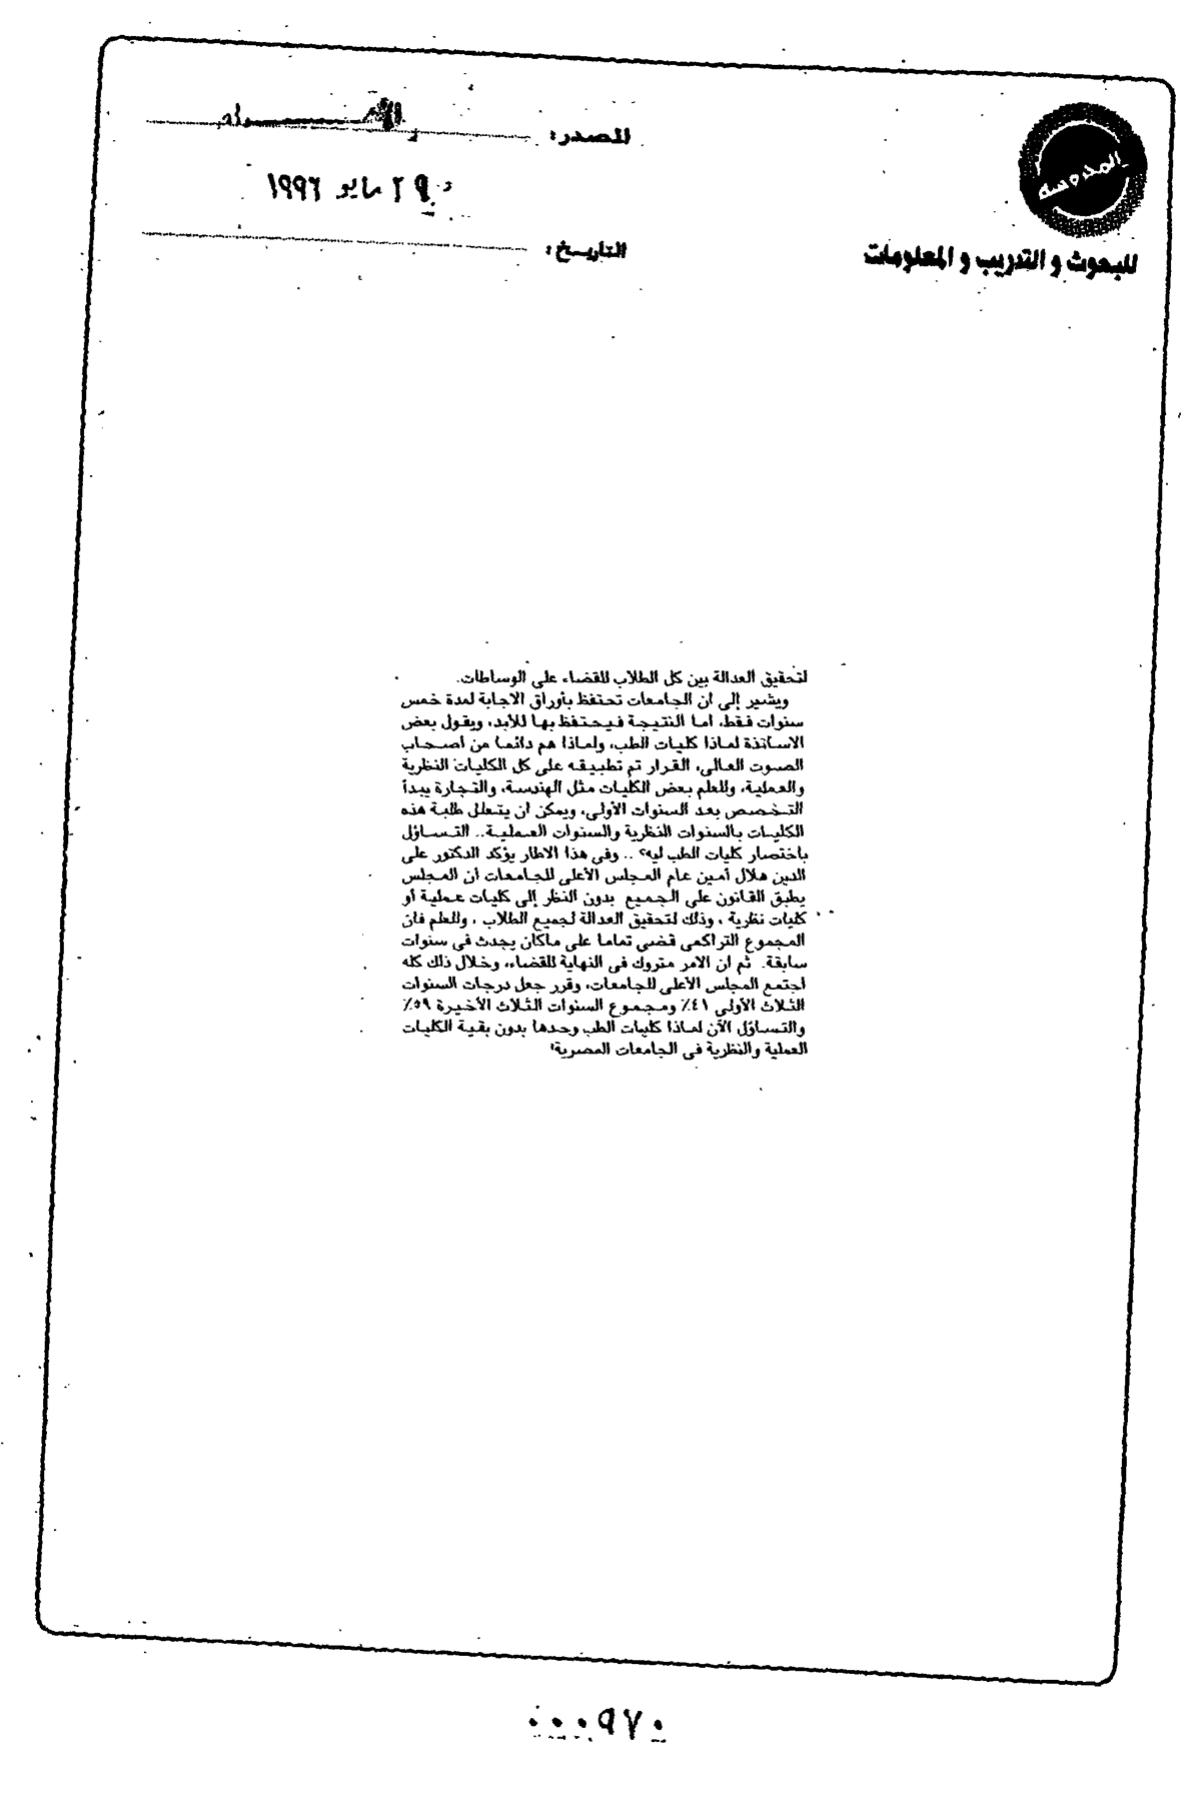 المصدر:
٢٩ مايو ١٩٩٦
التاريخ:
المدروسه
للبحوث و التدريب و المعلومات
لتحقيق العدالة بين كل الطلاب للقضاء على الوساطات.
ويشير إلى ان الجامعات تحتفظ بأوراق الاجابة لمدة خمس
سنوات فقط، اما النتيجة فيحتفظ بها للأبد، ويقول بعض
الاساتذة لماذا كليات الطب، ولماذا هم دائما من اصحاب
الصوت العالى، القرار تم تطبيقه على كل الكليات النظرية
والعملية، وللعلم بعض الكليات مثل الهندسة، والتجارة يبدأ
التخصص بعد السنوات الأولى، ويمكن ان يتعلل طلبة هذه
الكليات بالسنوات النظرية والسنوات العملية.. التساؤل
باختصار كليات الطب ليه؟ .. وفى هذا الاطار يؤكد الدكتور على
الدين هلال أمين عام المجلس الأعلى للجامعات أن المجلس
يطبق القانون على الجميع بدون النظر إلى كليات عملية أو
كليات نظرية ، وذلك لتحقيق العدالة لجميع الطلاب ، وللعلم فان
المجموع التراكمى قضى تماما على ماكان يحدث فى سنوات
سابقة. ثم ان الامر متروك فى النهاية للقضاء، وخلال ذلك كله
اجتمع المجلس الأعلى للجامعات، وقرر جعل درجات السنوات
الثلاث الأولى ٤١٪ ومجموع السنوات الثلاث الأخيرة ٥٩٪
والتساؤل الآن لماذا كليات الطب وحدها بدون بقية الكليات
العملية والنظرية فى الجامعات المصرية!
٠٠٠٩٧٠